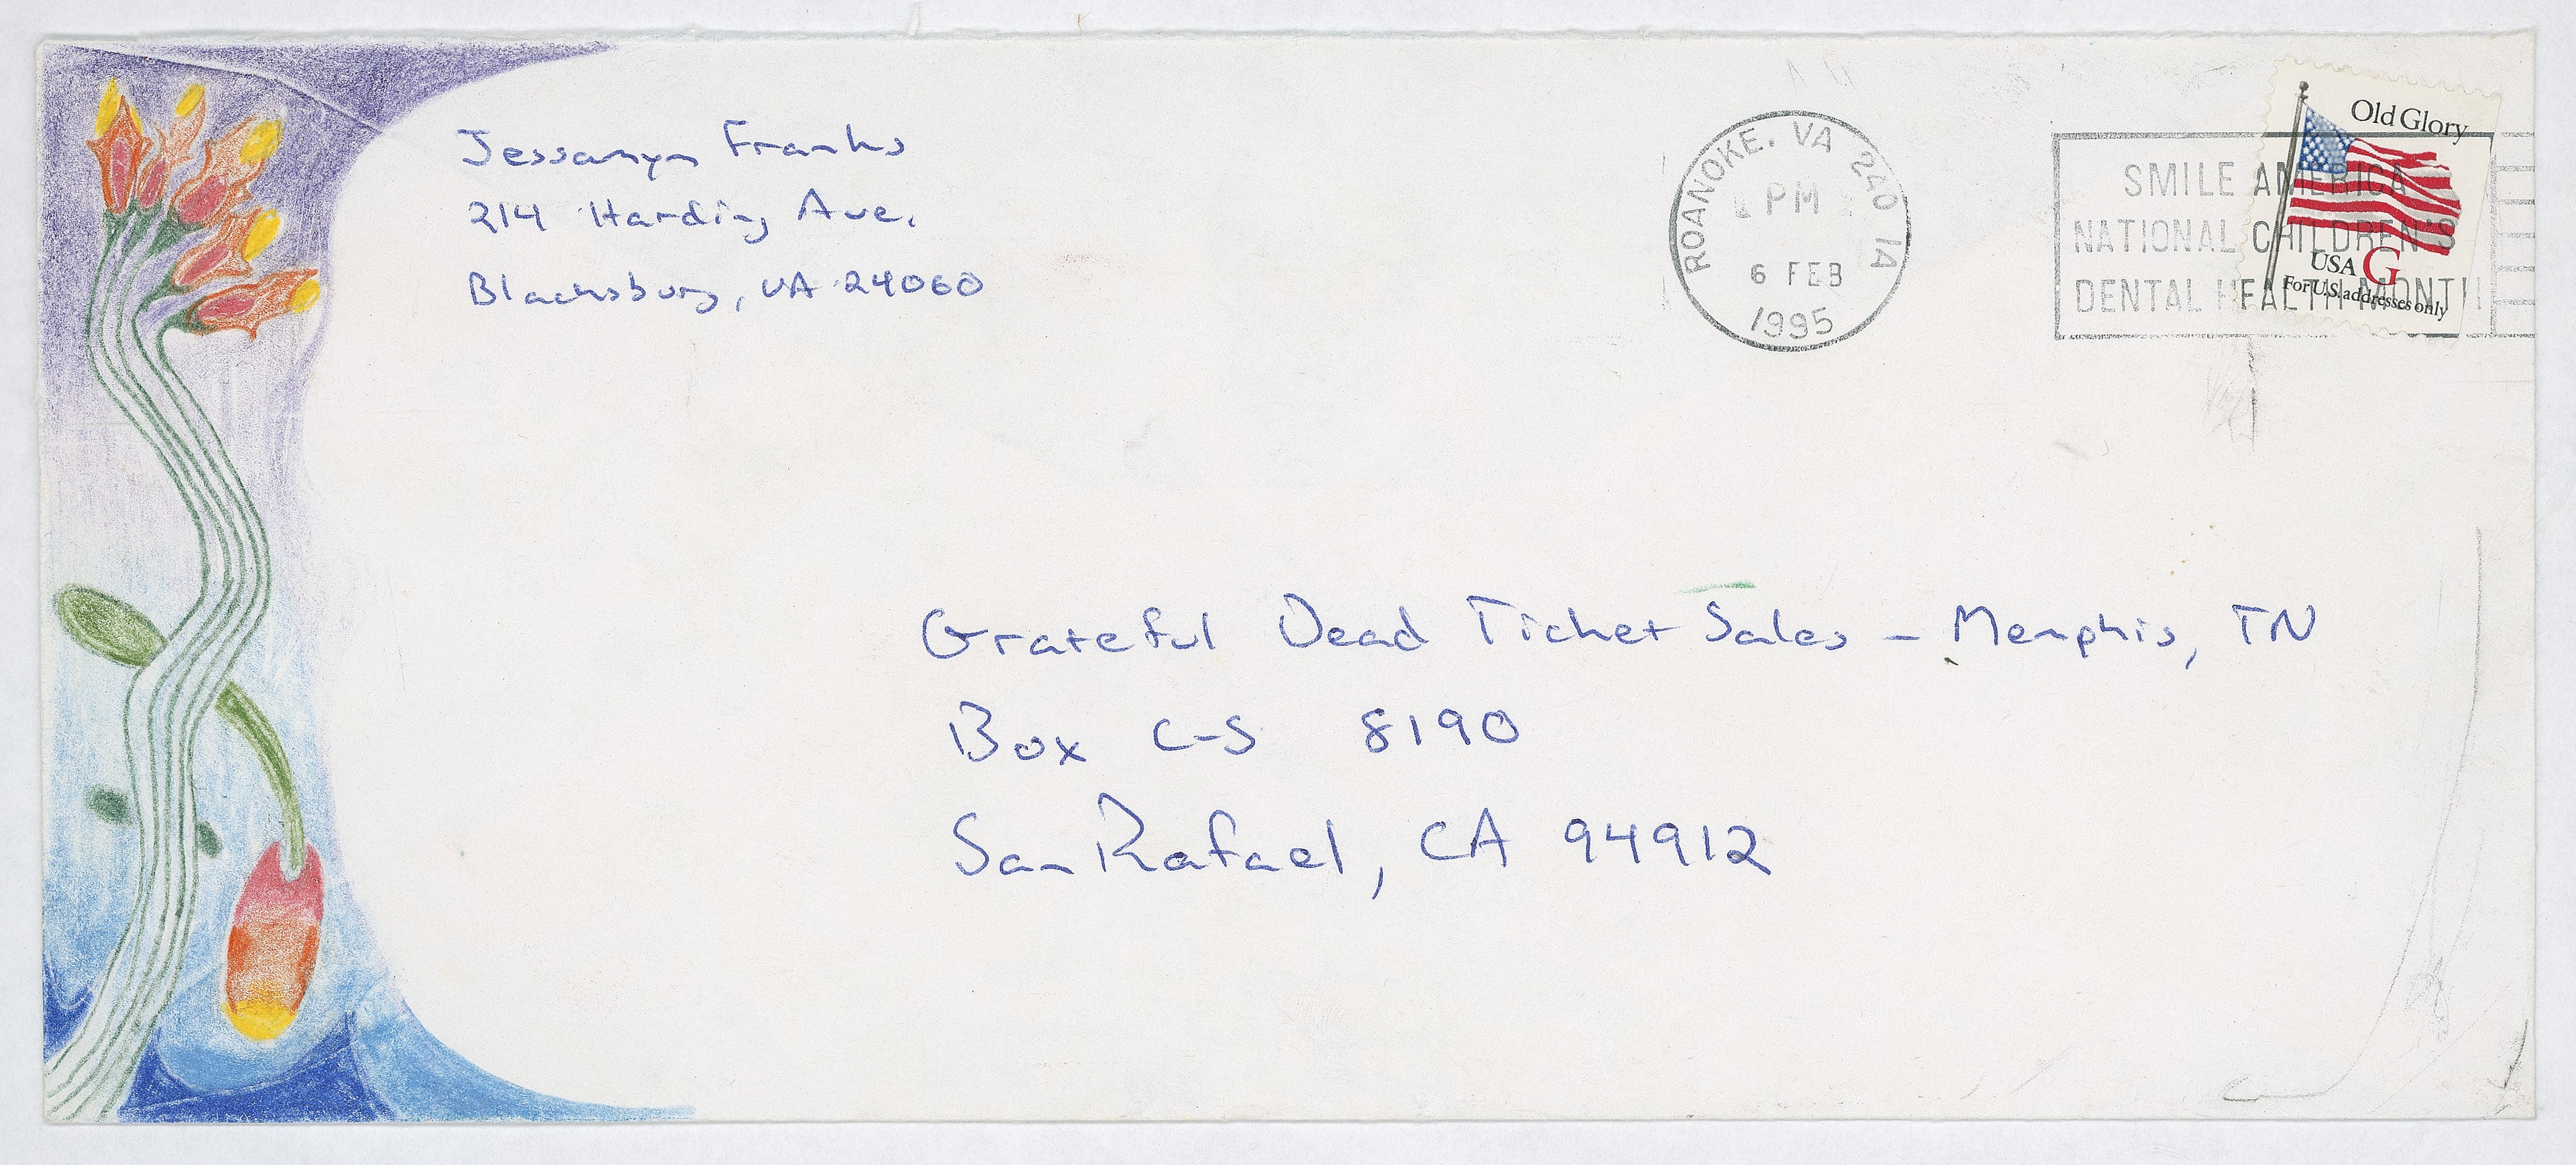 Jessamyn Franks
214 Harding Ave.
Blacksburg, VA 24060
ROANOKE, VA 240 1A
PM
6 FEB
1995
SMILE AMERICA
NATIONAL CHILDREN'S
DENTAL HEALTH MONTH
Old Glory
USA G
For U.S. addresses only
Grateful Dead Ticket Sales - Memphis, TN
Box C-S 8190
San Rafael, CA 94912